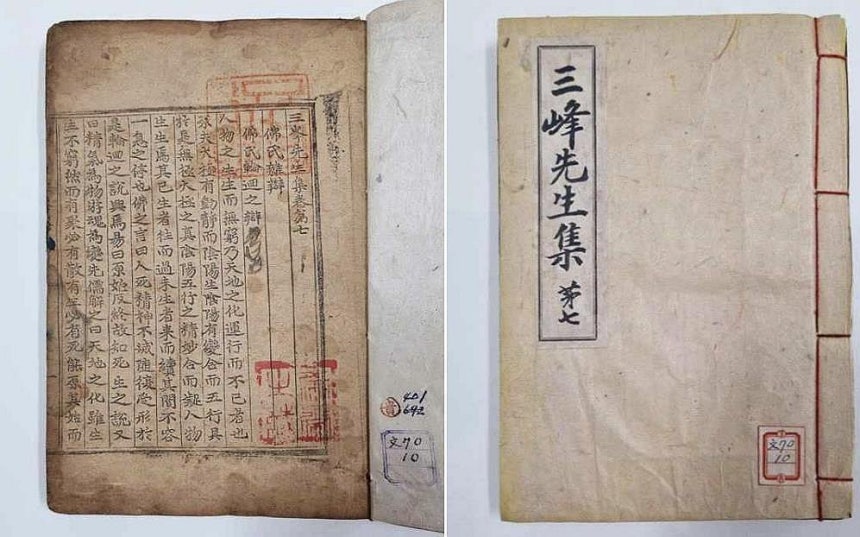 三峯先生集卷第七
佛氏雜辯
佛氏輪迴之辯
人物之生生而無窮乃天地之化運行而不已者也
夫太極有動靜而陰陽生陰陽有變合而五行具
於是無極太極之眞陰陽五行之精妙合而凝人物
生生焉其已生者往而過未生者來而續其間不容
一息之停也佛之言曰人死精神不滅隨復受形於
是輪迴之說興焉易曰原始反終故知死生之說又
曰精氣爲物游魂爲變先儒解之曰天地之化雖生
生不窮然而有聚必有散有生必有死能原其始而
貴 401
692
文70
10
三峰先生集 第七
文70
10